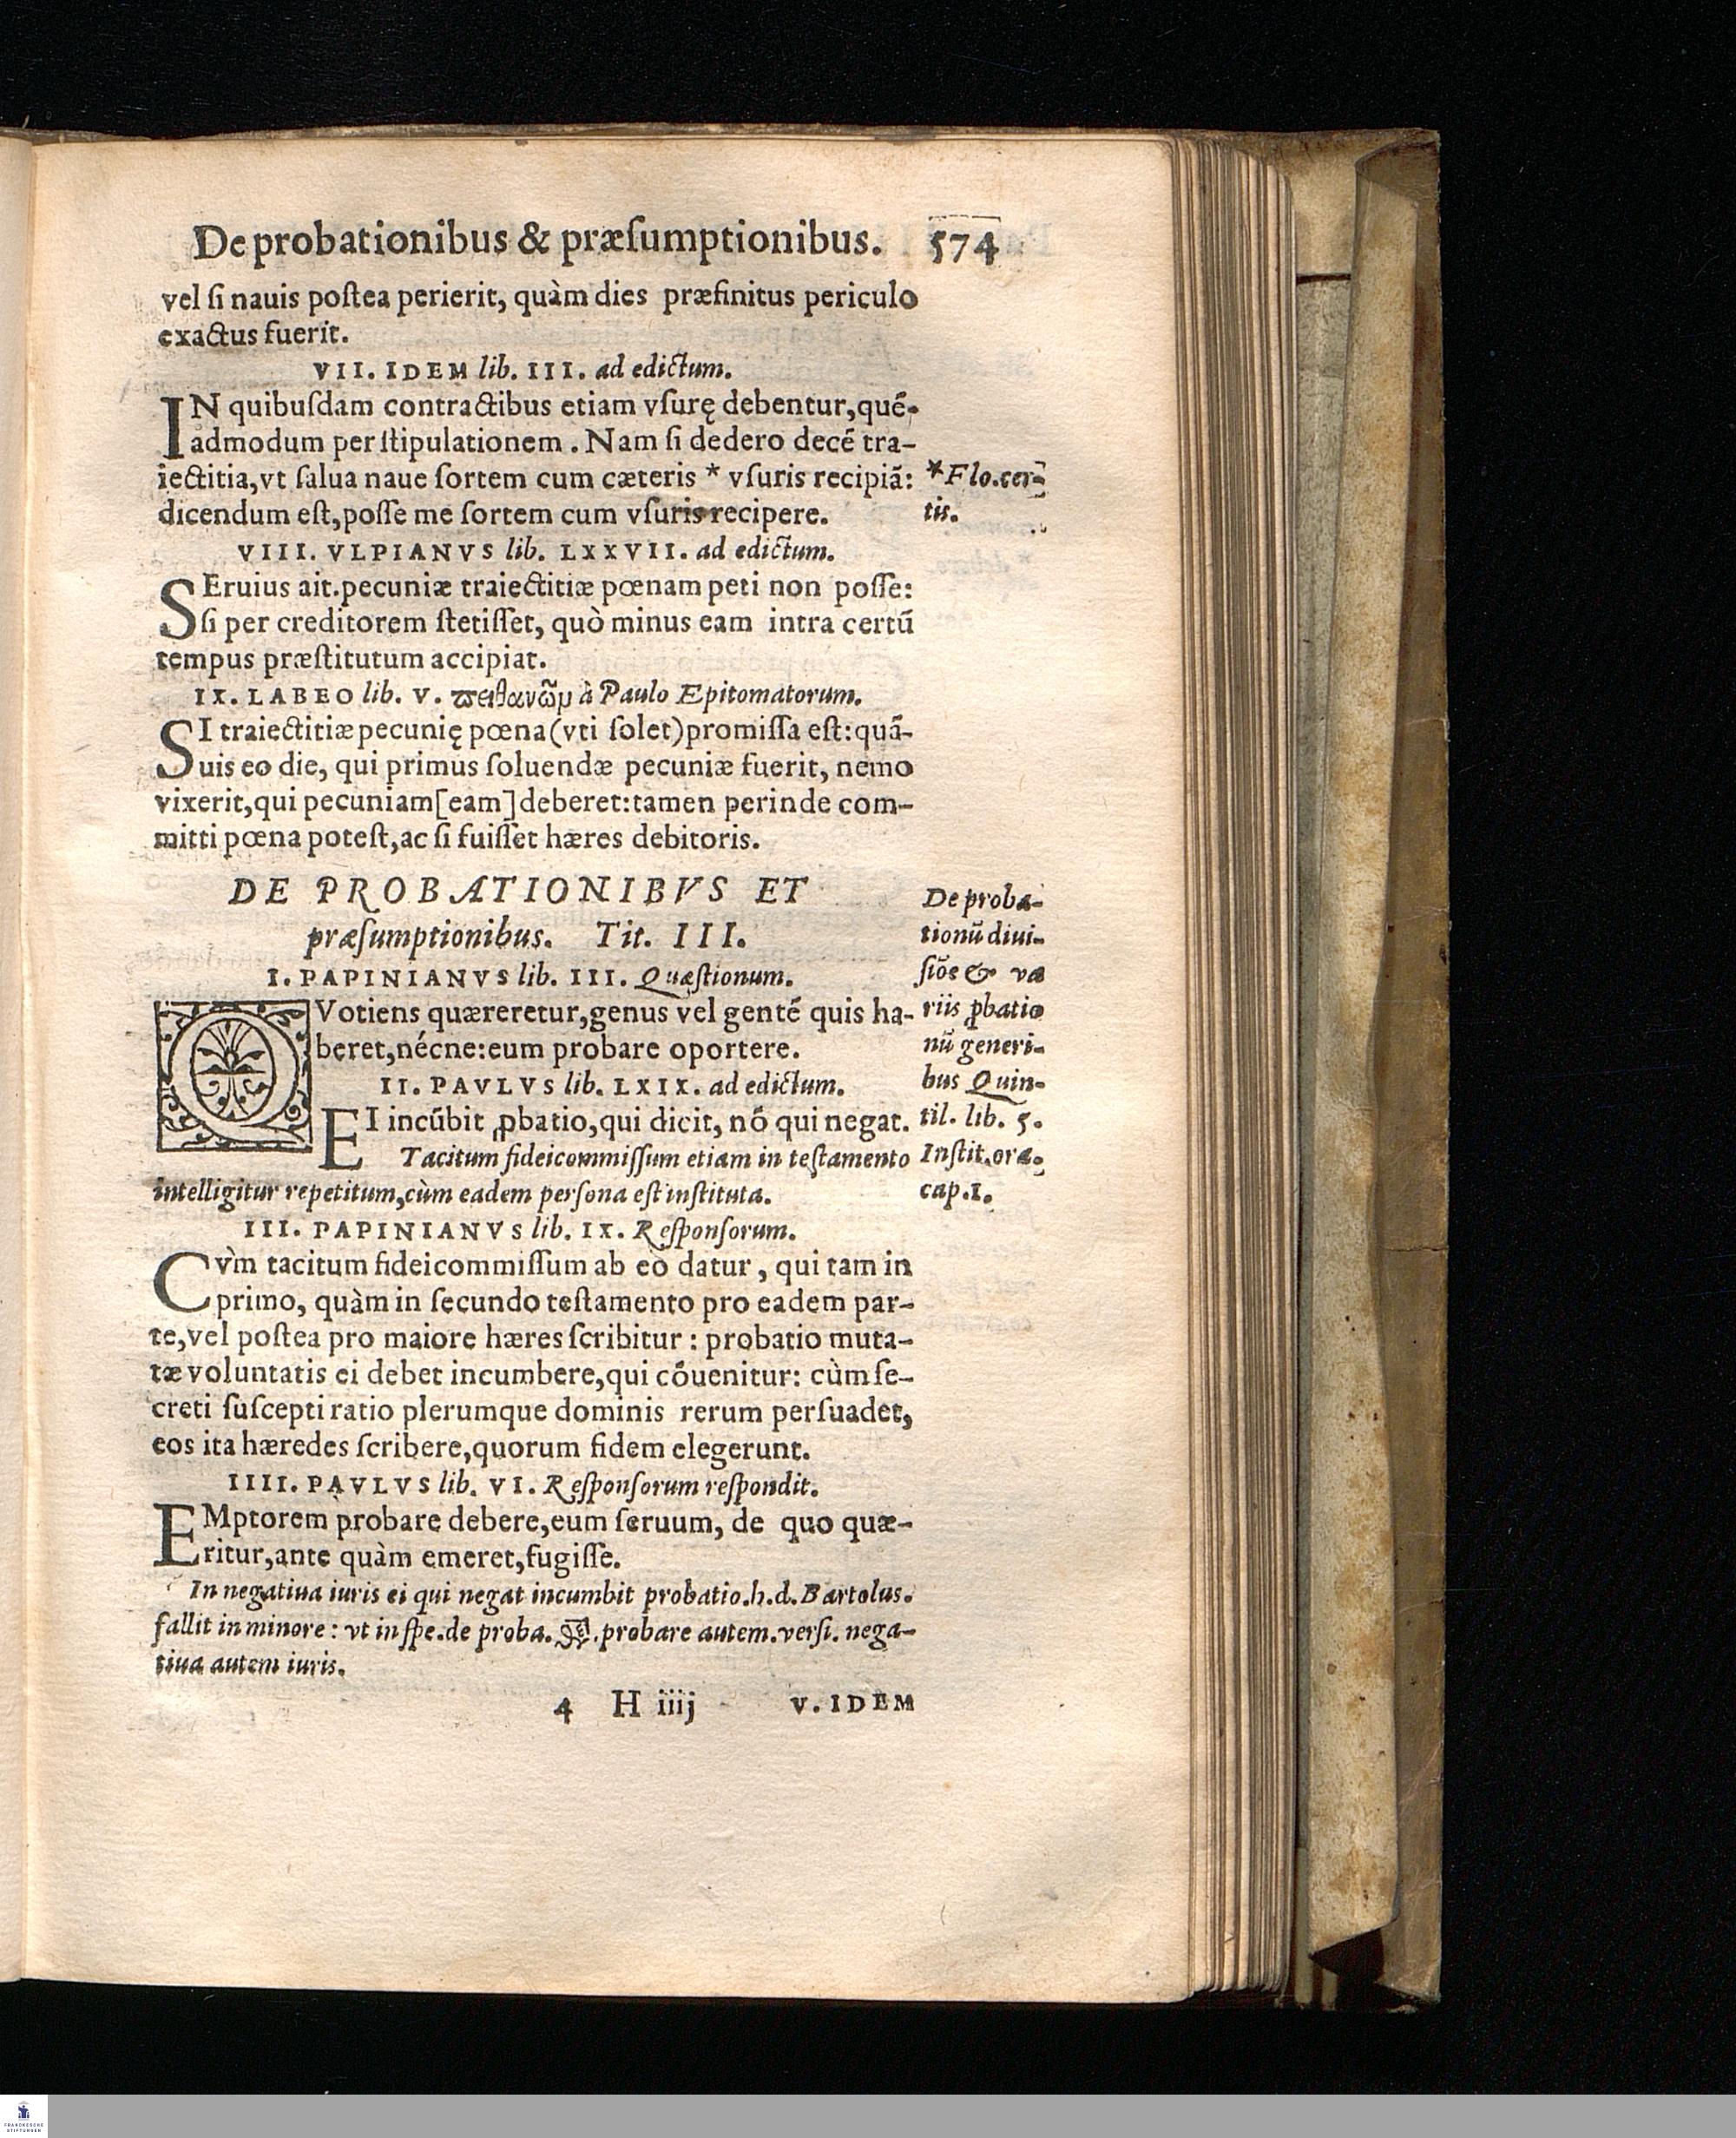 De probationibus & præſumptionibus. 574
vel ſi nauis poſtea perierit, quàm dies præfinitus periculo
exactus fuerit.
VII. IDEM lib. III. ad edictum.
IN quibuſdam contractibus etiam vſurę debentur, quē-
admodum per ſtipulationem. Nam ſi dedero decē tra-
iectitia, vt ſalua naue ſortem cum cæteris * vſuris recipiā:
dicendum eſt, poſſe me ſortem cum vſuris recipere.
*Flo. cer-
tis.
VIII. VLPIANVS lib. LXXVII. ad edictum.
SEruius ait. pecuniæ traiectitiæ pœnam peti non poſſe:
ſi per creditorem ſtetiſſet, quò minus eam intra certū
tempus præſtitutum accipiat.
IX. LABEO lib. V. ϖειθανῶμ à Paulo Epitomatorum.
SI traiectitiæ pecunię pœna (vti ſolet) promiſſa eſt: quā-
uis eo die, qui primus ſoluendæ pecuniæ fuerit, nemo
vixerit, qui pecuniam [eam] deberet: tamen perinde com-
mitti pœna poteſt, ac ſi fuiſſet hæres debitoris.
DE PROBATIONIBVS ET
præſumptionibus. Tit. III.
I. PAPINIANVS lib. III. Quæſtionum.
QVotiens quæreretur, genus vel gentē quis ha-
beret, nécne: eum probare oportere.
II. PAVLVS lib. LXIX. ad edictum.
EI incūbit ꝓbatio, qui dicit, nō qui negat.
Tacitum fideicommiſſum etiam in teſtamento
intelligitur repetitum, cùm eadem perſona eſt inſtituta.
De proba-
tionū diui-
ſiōe & va
riis ꝓbatio
nū generi-
bus Quin-
til. lib. 5.
Inſtit. ora.
cap. 1.
III. PAPINIANVS lib. IX. Reſponſorum.
CVm̀ tacitum fideicommiſſum ab eo datur, qui tam in
primo, quàm in ſecundo teſtamento pro eadem par-
te, vel poſtea pro maiore hæres ſcribitur: probatio muta-
tæ voluntatis ei debet incumbere, qui cōuenitur: cùm ſe-
creti ſuſcepti ratio plerumque dominis rerum perſuadet,
eos ita hæredes ſcribere, quorum fidem elegerunt.
IIII. PAVLVS lib. VI. Reſponſorum reſpondit.
EMptorem probare debere, eum ſeruum, de quo quæ-
ritur, ante quàm emeret, fugiſſe.
In negatiua iuris ei qui negat incumbit probatio. h. d. Bartolus.
fallit in minore: vt in ſpe. de proba. §. probare autem. verſi. nega-
tiua autem iuris.
4 H iiij V. IDEM
FRANCKESCHE
STIFTUNGEN